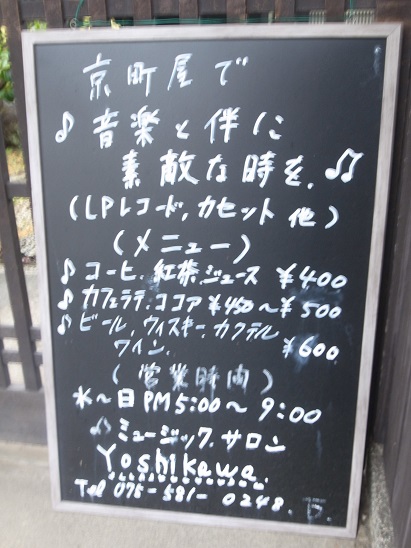 京町屋で
♪音楽と伴に
素敵な時を.♫
(LPレコード,カセット 他)
(メニュー)
♪コーヒ.紅茶.ジュース ¥400
♪カフェラテ.ココア ¥450〜¥500
♪ビール,ウィスキー.カクテル
ワイン. ¥600
(営業時間)
水〜日 PM5:00〜9:00
♪ミュージック.サロン
Yoshikawa.
Tel 075-581-0248.